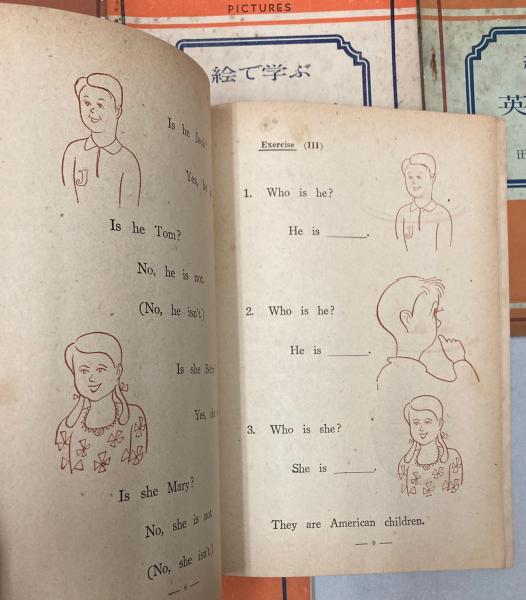 PICTURES
絵で学ぶ
英
田
Is he Jack?
Yes, he
J
Is he Tom?
No, he is not.
(No, he isn't.)
Is she Betty
Yes, she
Is she Mary?
No, she is not
(No, she isn't.)
— 8 —
Exercise (III)
1. Who is he?
He is ______.
J
2. Who is he?
He is ______.
3. Who is she?
She is ______.
They are American children.
— 9 —